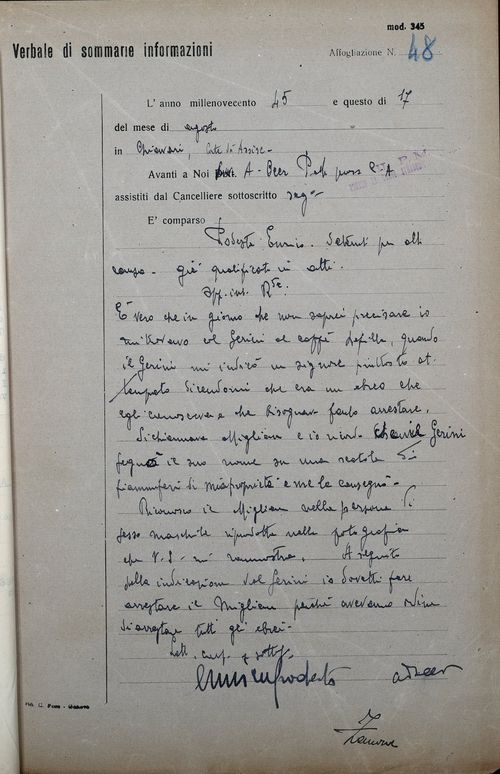 mod. 345
Verbale di sommarie informazioni
Affogliazione N. 48
L'anno millenovecento 45 e questo dì 17
del mese di agosto
in Chiavari, Corte di Assise -
Avanti a Noi A. Beer
assistiti dal Cancelliere sottoscritto
E' comparso
Podestà Enrico. Detenuto per altra
causa - già qualificato in atti.
È vero che in giorno che non saprei precisare io
mi trovavo col Gerini al caffè Defilla, quando
il Gerini mi indicò un signore piuttosto at-
tempato dicendomi che era un ebreo che
egli conosceva e che bisognava farlo arrestare.
Si chiamava Migliau e io ricordo che il Gerini
segnò il suo nome su una scatola di
fiammiferi di mia proprietà e me la consegnò -
Riconosco il Migliau nella persona di
sesso maschile riprodotta nella fotografia
che V.S. mi rammostra. A seguito
della indicazione del Gerini io dovetti fare
arrestare il Migliau perché avevamo ordine
di arrestare tutti gli ebrei -
Lett. conf. e sottos.